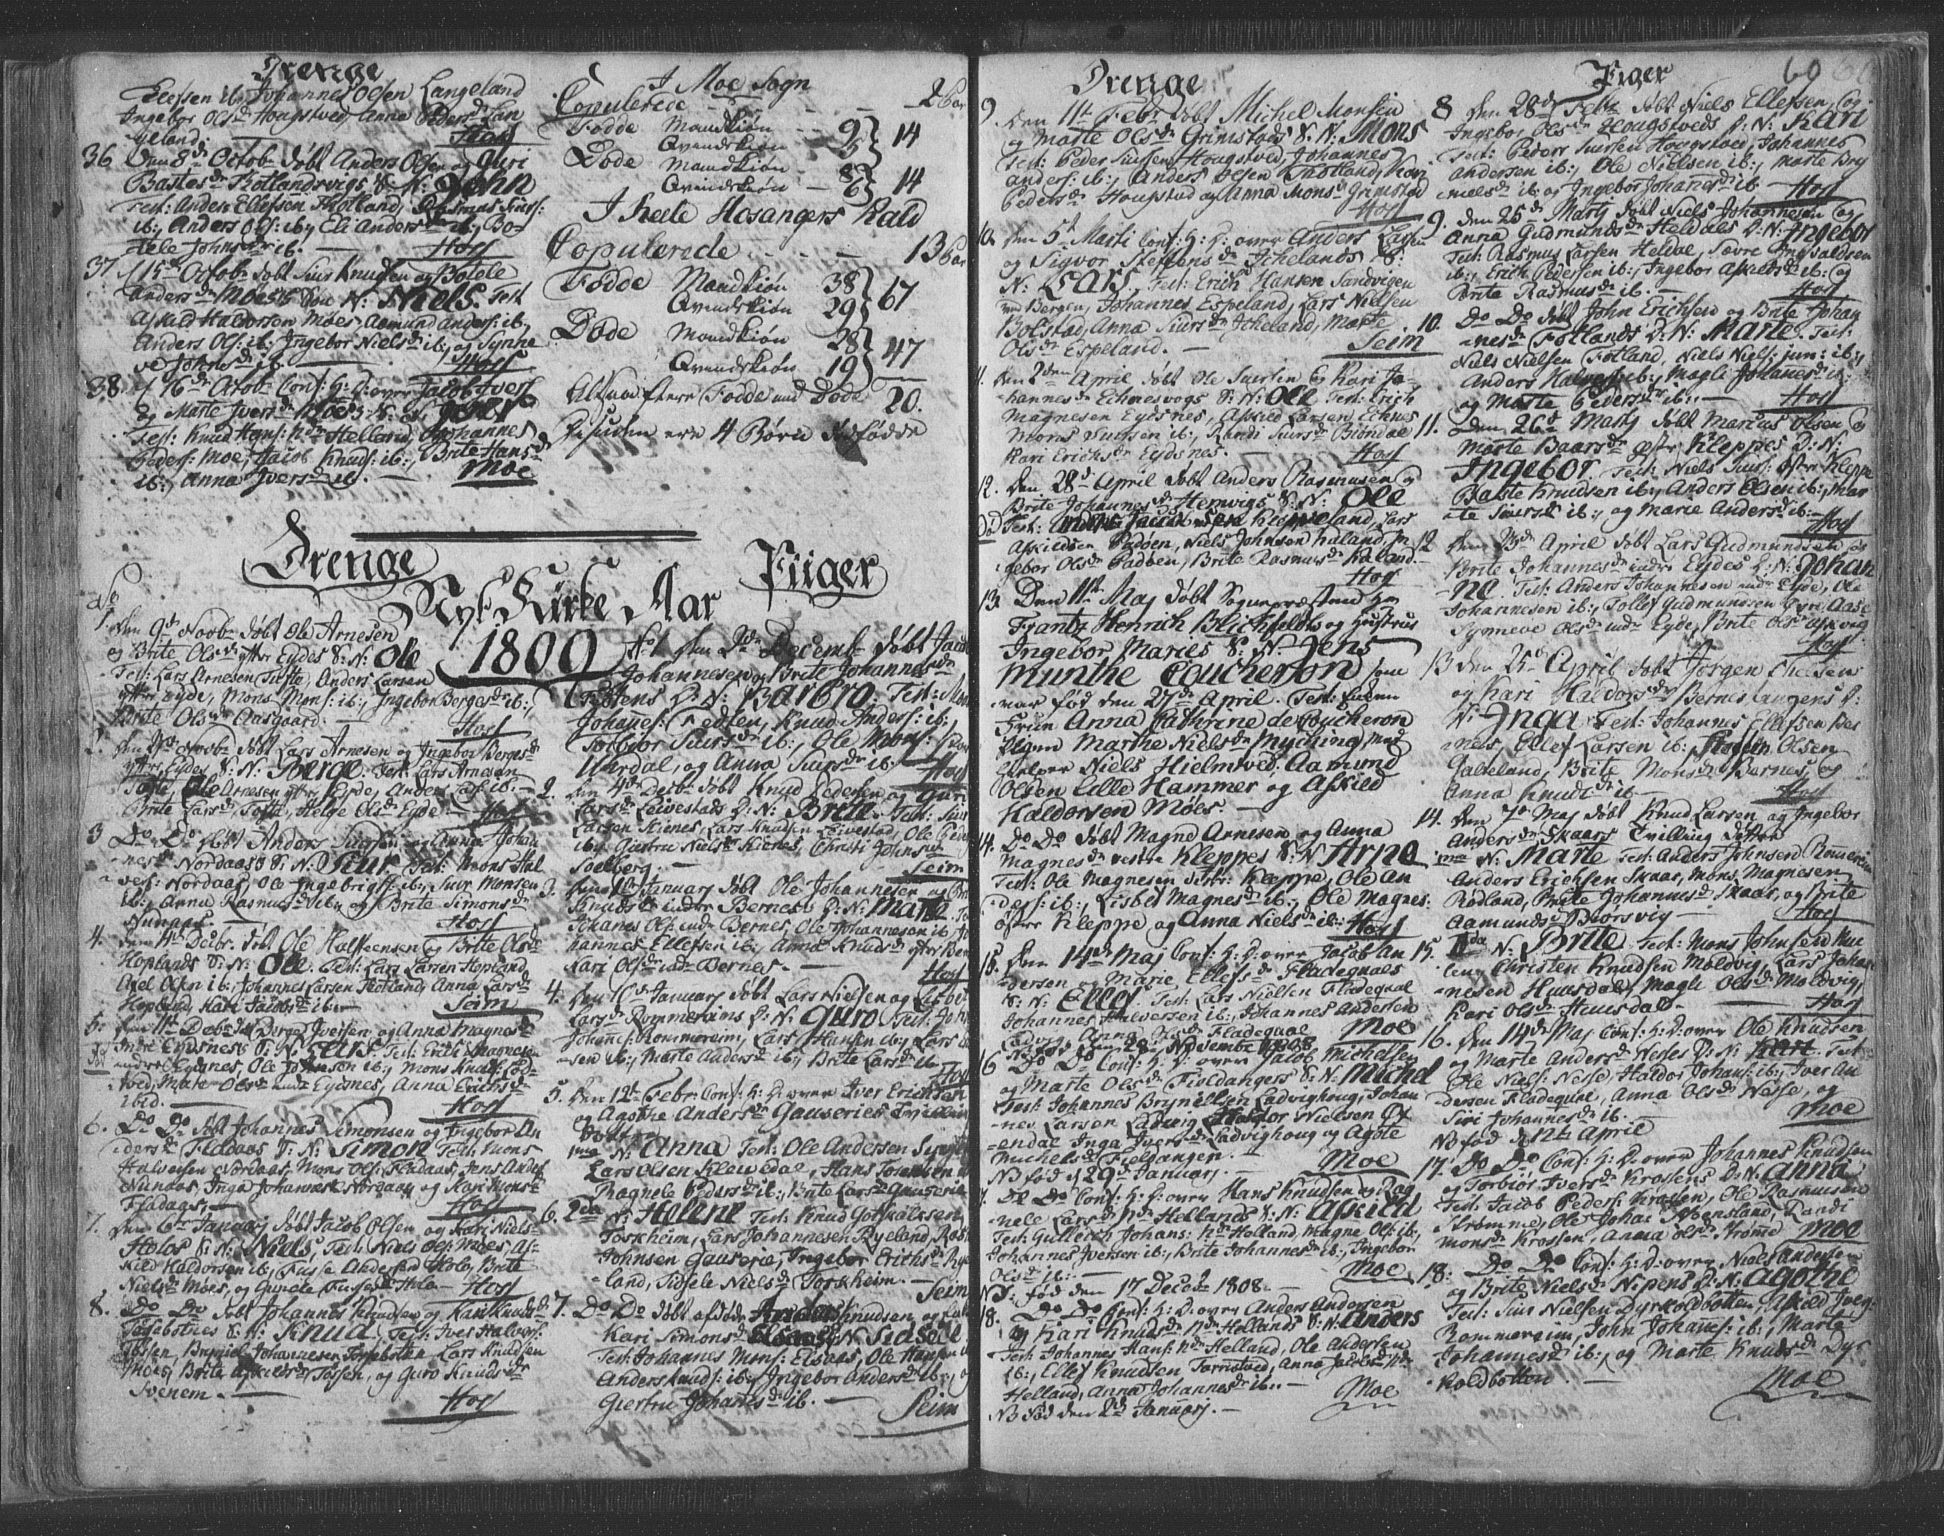 Drenge
Ellefsen ib: Johannes Olsen Langeland
Ingebor Ols dr Hougstved, Anna Peders dr Lan
geland.
Hosf
36 Den 8 d Octobr døbt Anders Olsen og Guri
Bastes dr Rotlandsvigs S: N: John
Test: Anders Ellefsen Fotland, Rasmus Siurs:
ib:, Anders Ols: ib:, Eli Anders dr ib:, Bo-
tele Johns dr ib:
Hosf
37. d 15 d Octobr døbt Siur Knudsen og Botele
Anders dr Moes S: N: Niels. Test:
Askild Haldorsen Moes, Aamund Anders: ib:,
Anders Ols: ib:, Ingebor Niels dr ib:, og Synne
ve Johns dr ib:
Hosf
38. d 16 d Octobr Conf: H: D: over Jacob Ivers:
og Marte Ivers dr Moes S: N: Iver
Test: Knud Hans: Helland, Johannes
Peders: Moe, Jacob Knuds: ib:, Brite Hans dr
ib:, Anna Ivers dr ib:
Moe
I Moe Sogn
Copulerede 2 Par
Fødde Mandkiøn 9 } 14
Qvindekiøn 5
Døde Mandkiøn 8 } 14
Qvindekiøn 6
I heele Hosangers Kald
Copulerede 13 Par
Fødde Mandkiøn 38 } 67
Qvindekiøn 29
Døde Mandkiøn 28 } 47
Qvindekiøn 19
Altsaa flere Fødde end Døde 20.
Desuden ere 4 Børn dødfødde
Drenge Piiger
Nyt Kirke Aar
1809
1. den 9 d Novbr døbt Ole Arnesen
og Brite Ols dr ytter Eydes S: N: Ole
Test: Lars Arnesen Tofte, Anders Larsen
ytter Eyde, Mons Mons: ib:, Ingebor Berges dr ib:,
Brite Ols dr Aasgaard.
Hosf
2. den Novbr døbt Lars Arnesen og Ingebor Berges dr
ytter Eydes S: N: Berge. Test: Lars Arnesen
Tofte, Ole Arnesen ytter Eyde, Anders Lars: ib:
Brite Lars dr Tofte, Helge Ols dr Eyde
Hosf
3 Do Do døbt Anders Siursen og Johan
nes dr Nordaas S: N: Siur Test: Mons Hal
vors: Nordaas, Ole Ingebrigts: ib:, Siur Monsen
ib:, Anna Rasmus dr ib:, og Brite Simons dr
Nordaas
Hosf
4. den 4 d Decbr døbt Ole Halsteensen og Brite Ols dr
Hoplands S: N: Ole. Test: Lars Larsen Hopland,
Axel Olsen ib:, Johannes Larsen Fotland, Anna Lars dr
Hopland, Kari Jacobs dr ib:
Seim
5. den 11 t Decbr døbt Berge Iversen og Anna Magnes dr
indre Eydsnes S: N: Lars. Test: Erik Magnesen
indre Eydsnes, Ole Johnsen ib:, Mons Knuds: Lod
voed, Marte Ols dr indr Eydsnes, Anna Erichs dr
ibid.
Hosf
6. Do Do døbt Johannes Simonsen og Ingebor An
ders dr Fladaas S: N: Simon Test: Mons
Halvorsen Nordaas, Mons Ols: Fladaas, Jens Anders:
Nundaas, Inga Johannes dr Nordaas og Kari Mons dr
Fladaas,
Hosf
7. den 6 te Januarj døbt Jacob Olsen og Kari Niels dr
Holos S: N: Niels, Test: Niels Ols: Moes, As-
kild Haldorsen ib:, Tufse Andersen Holo, Brite
Niels dr Moes, og Gurele Tufse dr Holo
Hosf
8. Do Do døbt Johannes Knudsen og Kari Knuds dr
Tossebottens S: N: Knud, Test: Iver Halvors:
Tossen, Brynild Johannesen Tossebotten, Lars Knudsen
Moes, Brite Askilds dr Tossen, og Guro Knuds dr
Ivenem.
Hosf
1. den 2 d Decembr døbt Jacob
Johannesen og Brite Johannes dr
Tedtens D: N: Barbro. Test: Mons
Johanes: Tedten, Knud Anders: ib:,
Torbiør Siurs dr ib:, Ole Mons:
Urdal, og Anna Siurs dr ib:
Hosf
2. den 4 d Decbr døbt Knud Pedersen og Guri
Lars dr Leivestads D: N: Brite. Test: Siur
Larsen Kienes, Lars Knudsen Leivestad, Ole Peders:
ib:, Giertru Niels dr Kienes, Christi Johns dr
Soelberg.
Seim
3. den 1 te Januarj døbt Ole Johannesen og Bri
Knuds dr indre Bernes D: N: Marte Te
Johanes Ols: indr Bernes, Ole Johannesen ib: Jo
hannes Ellefsen ib:, Anna Knuds dr ytter Ber
Kari Ols dr indr Bernes.
Hosf
4. den 10 de Januarj døbt Lars Nielsen og Lisbe
Lars dr Rommereims D: N: Guro Test: Joh
Johans: Rommereim, Lars Hansen ib:, Lars
sen ib:, Marte Anders dr ib:, Brite Lars dr ib
Hosf
5. den 12 te Febr: Conf: H: D: over Iver Erichsen
og Agothe Anders dr Gauseries Tvilling
Døttre
1ma N: Anna Test: Ole Andersen
Lars Olsen Kleivedal, Hans
Ragnele Peders dr ib:, Brite Lars dr Gauserie
6. 2da N: Helene Test: Knud Gotskalksen
Torkheim, Lars Johannesen Ryeland,
Johnsen Gauserie, Ingebor Erichs dr Rye
land, Figele Niels dr Torkheim.
Seim
7. Do Do døbt afdøde Anders Knudsen og
Kari Simons dr Elsaas D: N: Siseli
Test: Johannes Mons: Elsaas, Ole Hansen
Anders Knuds: ib:, Ingebor Anders dr ib:, og
Giertru Johanes dr ib.
Seim
Drenge
9. Den 11 te Febr: døbt Michel Monsen
og Marte Ols dr Grimstads S: N: Mons
Test: Peder Siursen Hougstved, Johannes
Anders: ib:, Anders Olsen Fotland, Kari
Peders dr Hougstad og Anna Mons dr Grimstad
Hosf
10. den 5 te Marti Conf: H: D: over Anders Lars:
og Sigvor Steffens dr Ichelands S:
N: Lars, Test: Erich Hansen Sandvigen
ved Bergen, Johannes Espeland, Lars Nielsen
Bolstad, Anna Siurs dr Icheland, Marte
Ols dr Espeland.
Seim
11. den 2 den April døbt Ole Siursen og Kari Jo-
hannes dr Echnesvogs S: N: Ole Test: Erich
Magnesen Eydsnes, Askild Larsen Echnes
Mons Siursen ib:, Randi Siurs dr Biørndal
Kari Erichs dr Eydsnes.
Hosf
12. den 28 d April døbt Anders Rasmusen og
Brite Johannes dr Hervigs S: N: Ole
Død Test: Kleppeland, Lars
Askildsen Padøen, Niels Johnsen Haland, In
gebor Ols dr Padøen, Brite Rasmus dr Haland.
Hosf
13. Den 11 te Maj døbt Sognepræsten Hr
Frantz Henrich Blichfeldts og Hustrus
Ingebor Maries S: N: Jens
Munthe Coucheron som
var fød den 27 de April. Test: Faders
Fruen Anna Cathrine de Coucheron
Pigen Marthe Niels dr Myching, Med
hielper Niels Hielmved, Aamund
Olsen Lille Hammer og Askild
Haldorsen Moes.
14. Do Do døbt Magne Arnesen og Anna
Magnes dr vestre Kleppes S: N: Arne
Test: Ole Magnesen vestre Kleppe, Ole An
ders: ib:, Lisbet Magnes dr ib:, Ole Magnes:
øster Kleppe og Anna Niels dr ib:
Hosf
15. Den 14 de Maj Conf: H: D: over Jacob An
dersen og Marie Ellefs dr Fladequals
S: N: Ellef Test: Lars Nielsen Fladequal
Johannes Halversen ib:, Johannes Andersen
Ladvig, Anna Fladequal
Moe
N: fød den 28 Novembr 1808
16 Do Do Conf: H: D: over Jacob Michelsen
og Marte Ols dr Fioldangers S: N: Michel
Test: Johannes Brynildsen Ladvighoug, Johan
nes Larsen Ladvig, Haldor Nielsen Ox
endal, Inga Ivers dr Ladvighoug og Agote
Michels dr Fioldangen.
NB fød d 29 d Januarj.
Moe
17. Do Do Conf: H: D: over Hans Knudsen og Rag
nele Lars dr Hellands S: N: Askild
Test: Gullich Johans: Helland, Magne Ols: ib:,
Johannes Iversen ib:, Brite Johannes dr ib:, Ingebor
Ols dr ib:
Moe
NB: fød den 17 Decbr 1808.
18. Do Do Conf: H: D: over Anders Andersen
og Kari Knuds dr Hellands S: N: Anders
Test: Johannes Hans: Helland, Ole Andersen
ib:, Ellef Knudsen Tarnstved, Anna Jacobs dr
Helland, Anna Johannes dr ib.
Moe
NB fød den 2 d Januarj.
Piger 60
8 den 28 de Febr døbt Niels Ellefsen, og
Ingebor Ols dr Hougstveds D: N: Kari
Test: Peder Siursen Hougstved, Johannes
Andersen ib:, Ole Nielsen ib:, Marte Bry
niels dr ib: og Ingebor Johannes dr ib
Hosf
9. den 25 de Martj døbt Niels Johannesen og
Anna Gudmunds dr Heldals D: N: Ingebor
Test: Rasmus Larsen Heldal, Sævre Ingvaldsen
ib:, Erich Pedersen ib:, Ingebor Askilds dr ib: og
Brite Rasmus dr ib.
Hosf
10. Do Do døbt John Erichsen og Brite Johan
nes dr Fotlands D: N: Marte. Test:
Niels Nielsen Fotland, Niels Niels: jun: ib:,
Anders Halvors: ib:, Magli Johanes dr ib:
og Marte Peders dr ib.
Hosf
11. Den 26 de Martj døbt Marcus Olsen og
Marte Baars dr øster Kleppes D: N:
Ingebor Test: Niels Siurs: øster Kleppe
Baste Knudsen ib:, Anders Olsen ib:, Mar
te Siurs dr ib:, og Marie Anders dr ib:
Hosf
12 den 3 de April døbt Lars Gudmundsen og
Brite Johannes dr indre Eydes D: N: Johan
ne. Test: Anders Johannesen indr Eyde, Ole
Johannesen ib:, Tollef Gudmundsen Øvre Aase
Synneve Ols dr indr Eyde, Brite Ols dr
Hosf
13 den 25 d April døbt Jørgen Chelsens
og Kari Haldors dr Bernes Langens D:
N: Inga Test: Johannes Ellefsen Ber
nes, Ellef Larsen ib:, Steffen Olsen
Galteland, Brite Mons dr Bernes, og
Anna Knuds dr ib
Hosf
14. den 7 de Maj døbt Knud Larsen og Ingebor
Anders dr Skaars Tvilling døttre
1ma N: Marte Test: Anders Johnsen Rommereim
Anders Erichsen Skaar, Mons Magnesen
Rødland, Brite Johannes dr Skaar, og Brite
Aamunds dr Biorsvig
Hosf
15. 2da N: Brite Test: Mons Johnsen
Christen Knudsen Moldvig, Lars Johan
nesen Huusdal, Magli Ols dr Moldvig,
Kari Ols dr Huusdal
Hosf
16. Den 14 de Maj Conf: H: D: over Ole Knudsen
og Marte Anders dr Nesses D: N: Kari Test:
Ole Niels: Nesse, Haldor Johans: ib:, Iver An
dersen Fladequal, Anna Ols dr Nesse, og
Siri Johannes dr ib.
Moe
NB fød d 12 te April
17. Do Do Conf: H: D: over Johannes Knudsen
og Torbiør Ivers dr Krossens D: N: Anna
Test: Jacob Peders: Krossen, Ole Rasmusen
Strømme, Ole Johas: Svensland, Randi
Mons dr Krossen, Anna Ols dr Strømme
Moe
18. Do Do Conf: H: D: over Niels Andersen
og Brite Niels dr Nipens D: N: Agothe
Test: Siur Nielsen Dyrkoldbotten, Askild Iver:
Rommereim, John Johanes: ib:, Marte
Johannes dr ib:, og Marte Knuds dr Dyr
koldbotten.
Moe